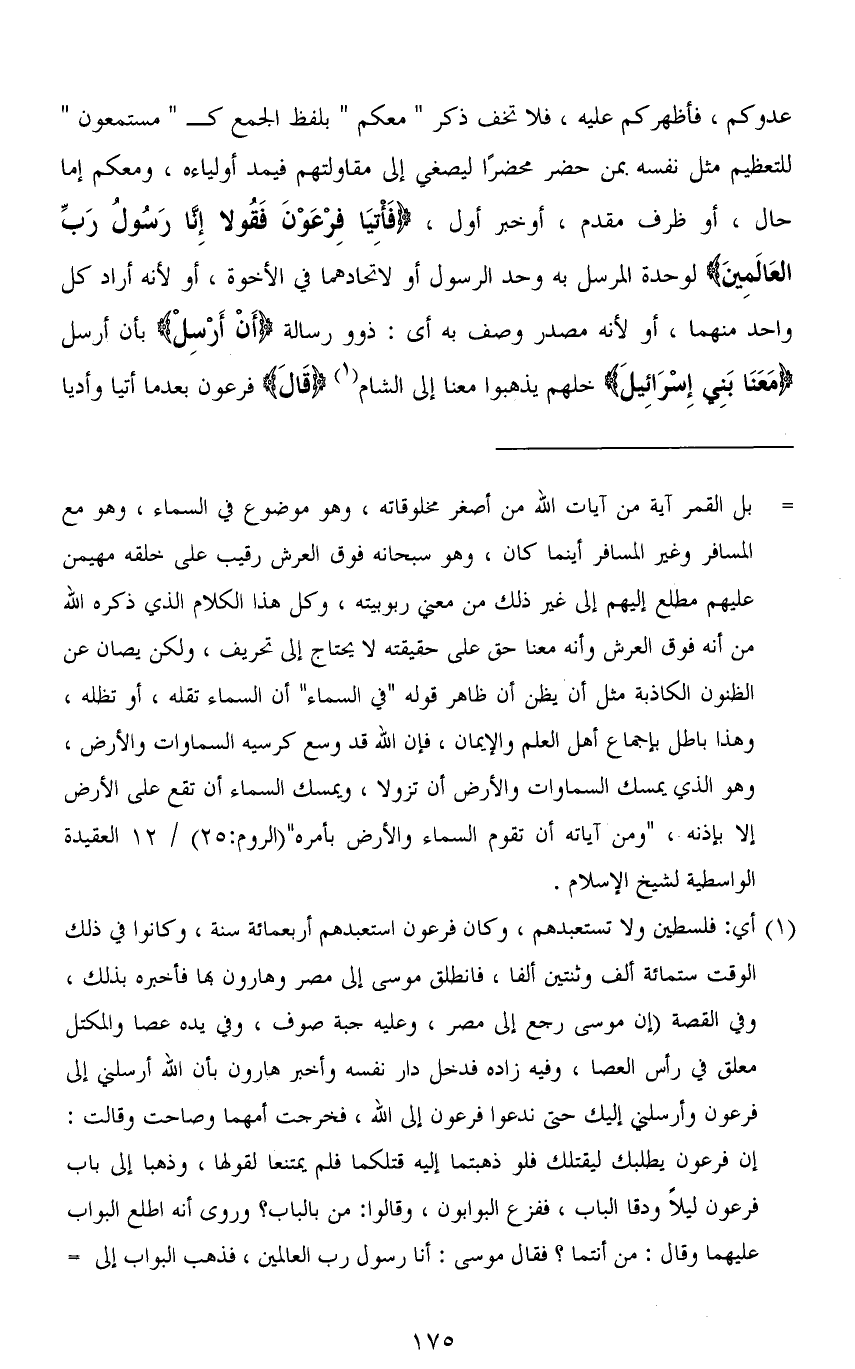 عدوكم ، فأظهركم عليه ، فلا تخف ذكر " معكم " بلفظ الجمع كـــ " مستمعون "
للتعظيم مثل نفسه بمن حضر محضرًا ليصغي إلى مقاولتهم فيمد أولياءه ، ومعكم إما
حال ، أو ظرف مقدم ، أوخبر أول ، ﴿فَأْتِيَا فِرْعَوْنَ فَقُولا إِنَّا رَسُولُ رَبِّ
العَالَمِينَ﴾ لوحدة المرسل به وحد الرسول أو لاتحادهما في الأخوة ، أو لأنه أراد كل
واحد منهما ، أو لأنه مصدر وصف به أى : ذوو رسالة ﴿أَنْ أَرْسِلْ﴾ بأن أرسل
﴿مَعَنَا بَنِي إِسْرَائِيلَ﴾ خلهم يذهبوا معنا إلى الشام(١) ﴿قَالَ﴾ فرعون بعدما أتيا وأديا
= بل القمر آية من آيات الله من أصغر مخلوقاته ، وهو موضوع في السماء ، وهو مع
المسافر وغير المسافر أينما كان ، وهو سبحانه فوق العرش رقيب على خلقه مهيمن
عليهم مطلع إليهم إلى غير ذلك من معني ربوبيته ، وكل هذا الكلام الذي ذكره الله
من أنه فوق العرش وأنه معنا حق على حقيقته لا يحتاج إلى تحريف ، ولكن يصان عن
الظنون الكاذبة مثل أن يظن أن ظاهر قوله "في السماء" أن السماء تقله ، أو تظله ،
وهذا باطل بإجماع أهل العلم والإيمان ، فإن الله قد وسع كرسيه السماوات والأرض ،
وهو الذي يمسك السماوات والأرض أن تزولا ، ويمسك السماء أن تقع على الأرض
إلا بإذنه ، "ومن آياته أن تقوم السماء والأرض بأمره"(الروم:٢٥) / ١٢ العقيدة
الواسطية لشيخ الإسلام .
(١) أي: فلسطين ولا تستعبدهم ، وكان فرعون استعبدهم أربعمائة سنة ، وكانوا في ذلك
الوقت ستمائة ألف وثنتين ألفا ، فانطلق موسى إلى مصر وهارون بها فأخبره بذلك ،
وفي القصة (إن موسى رجع إلى مصر ، وعليه جبة صوف ، وفي يده عصا والمكتل
معلق في رأس العصا ، وفيه زاده فدخل دار نفسه وأخبر هارون بأن الله أرسلني إلى
فرعون وأرسلني إليك حتى ندعوا فرعون إلى الله ، فخرجت أمهما وصاحت وقالت :
إن فرعون يطلبك ليقتلك فلو ذهبتما إليه قتلكما فلم يمتنعا لقولها ، وذهبا إلى باب
فرعون ليلاً ودقا الباب ، ففزع البوابون ، وقالوا: من بالباب؟ وروى أنه اطلع البواب
عليهما وقال : من أنتما ؟ فقال موسى : أنا رسول رب العالمين ، فذهب البواب إلى =
١٧٥